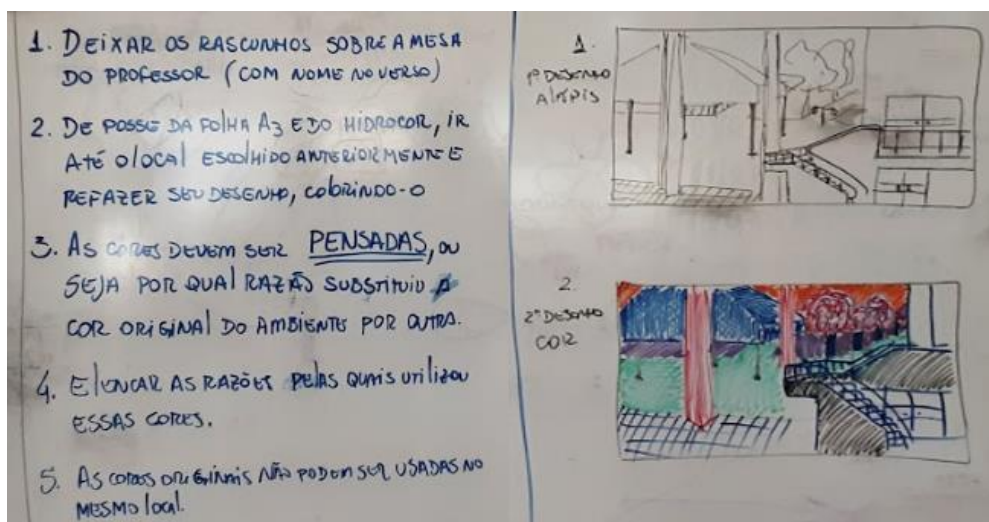 1. DEIXAR OS RASCUNHOS SOBRE A MESA
DO PROFESSOR (COM NOME NO VERSO)
2. DE POSSE DA FOLHA A3 E DO HIDROCOR, IR
ATÉ O LOCAL ESCOLHIDO ANTERIORMENTE E
REFAZER SEU DESENHO, COBRINDO-O
3. AS CORES DEVEM SER PENSADAS, OU
SEJA POR QUAL RAZÃO SUBSTITUIU A
COR ORIGINAL DO AMBIENTE POR OUTRA.
4. ELENCAR AS RAZÕES PELAS QUAIS UTILIZOU
ESSAS CORES.
5. AS CORES ORIGINAIS NÃO PODEM SER USADAS NO
MESMO LOCAL.
1.
1º DESENHO
A LÁPIS
2.
2º DESENHO
COR